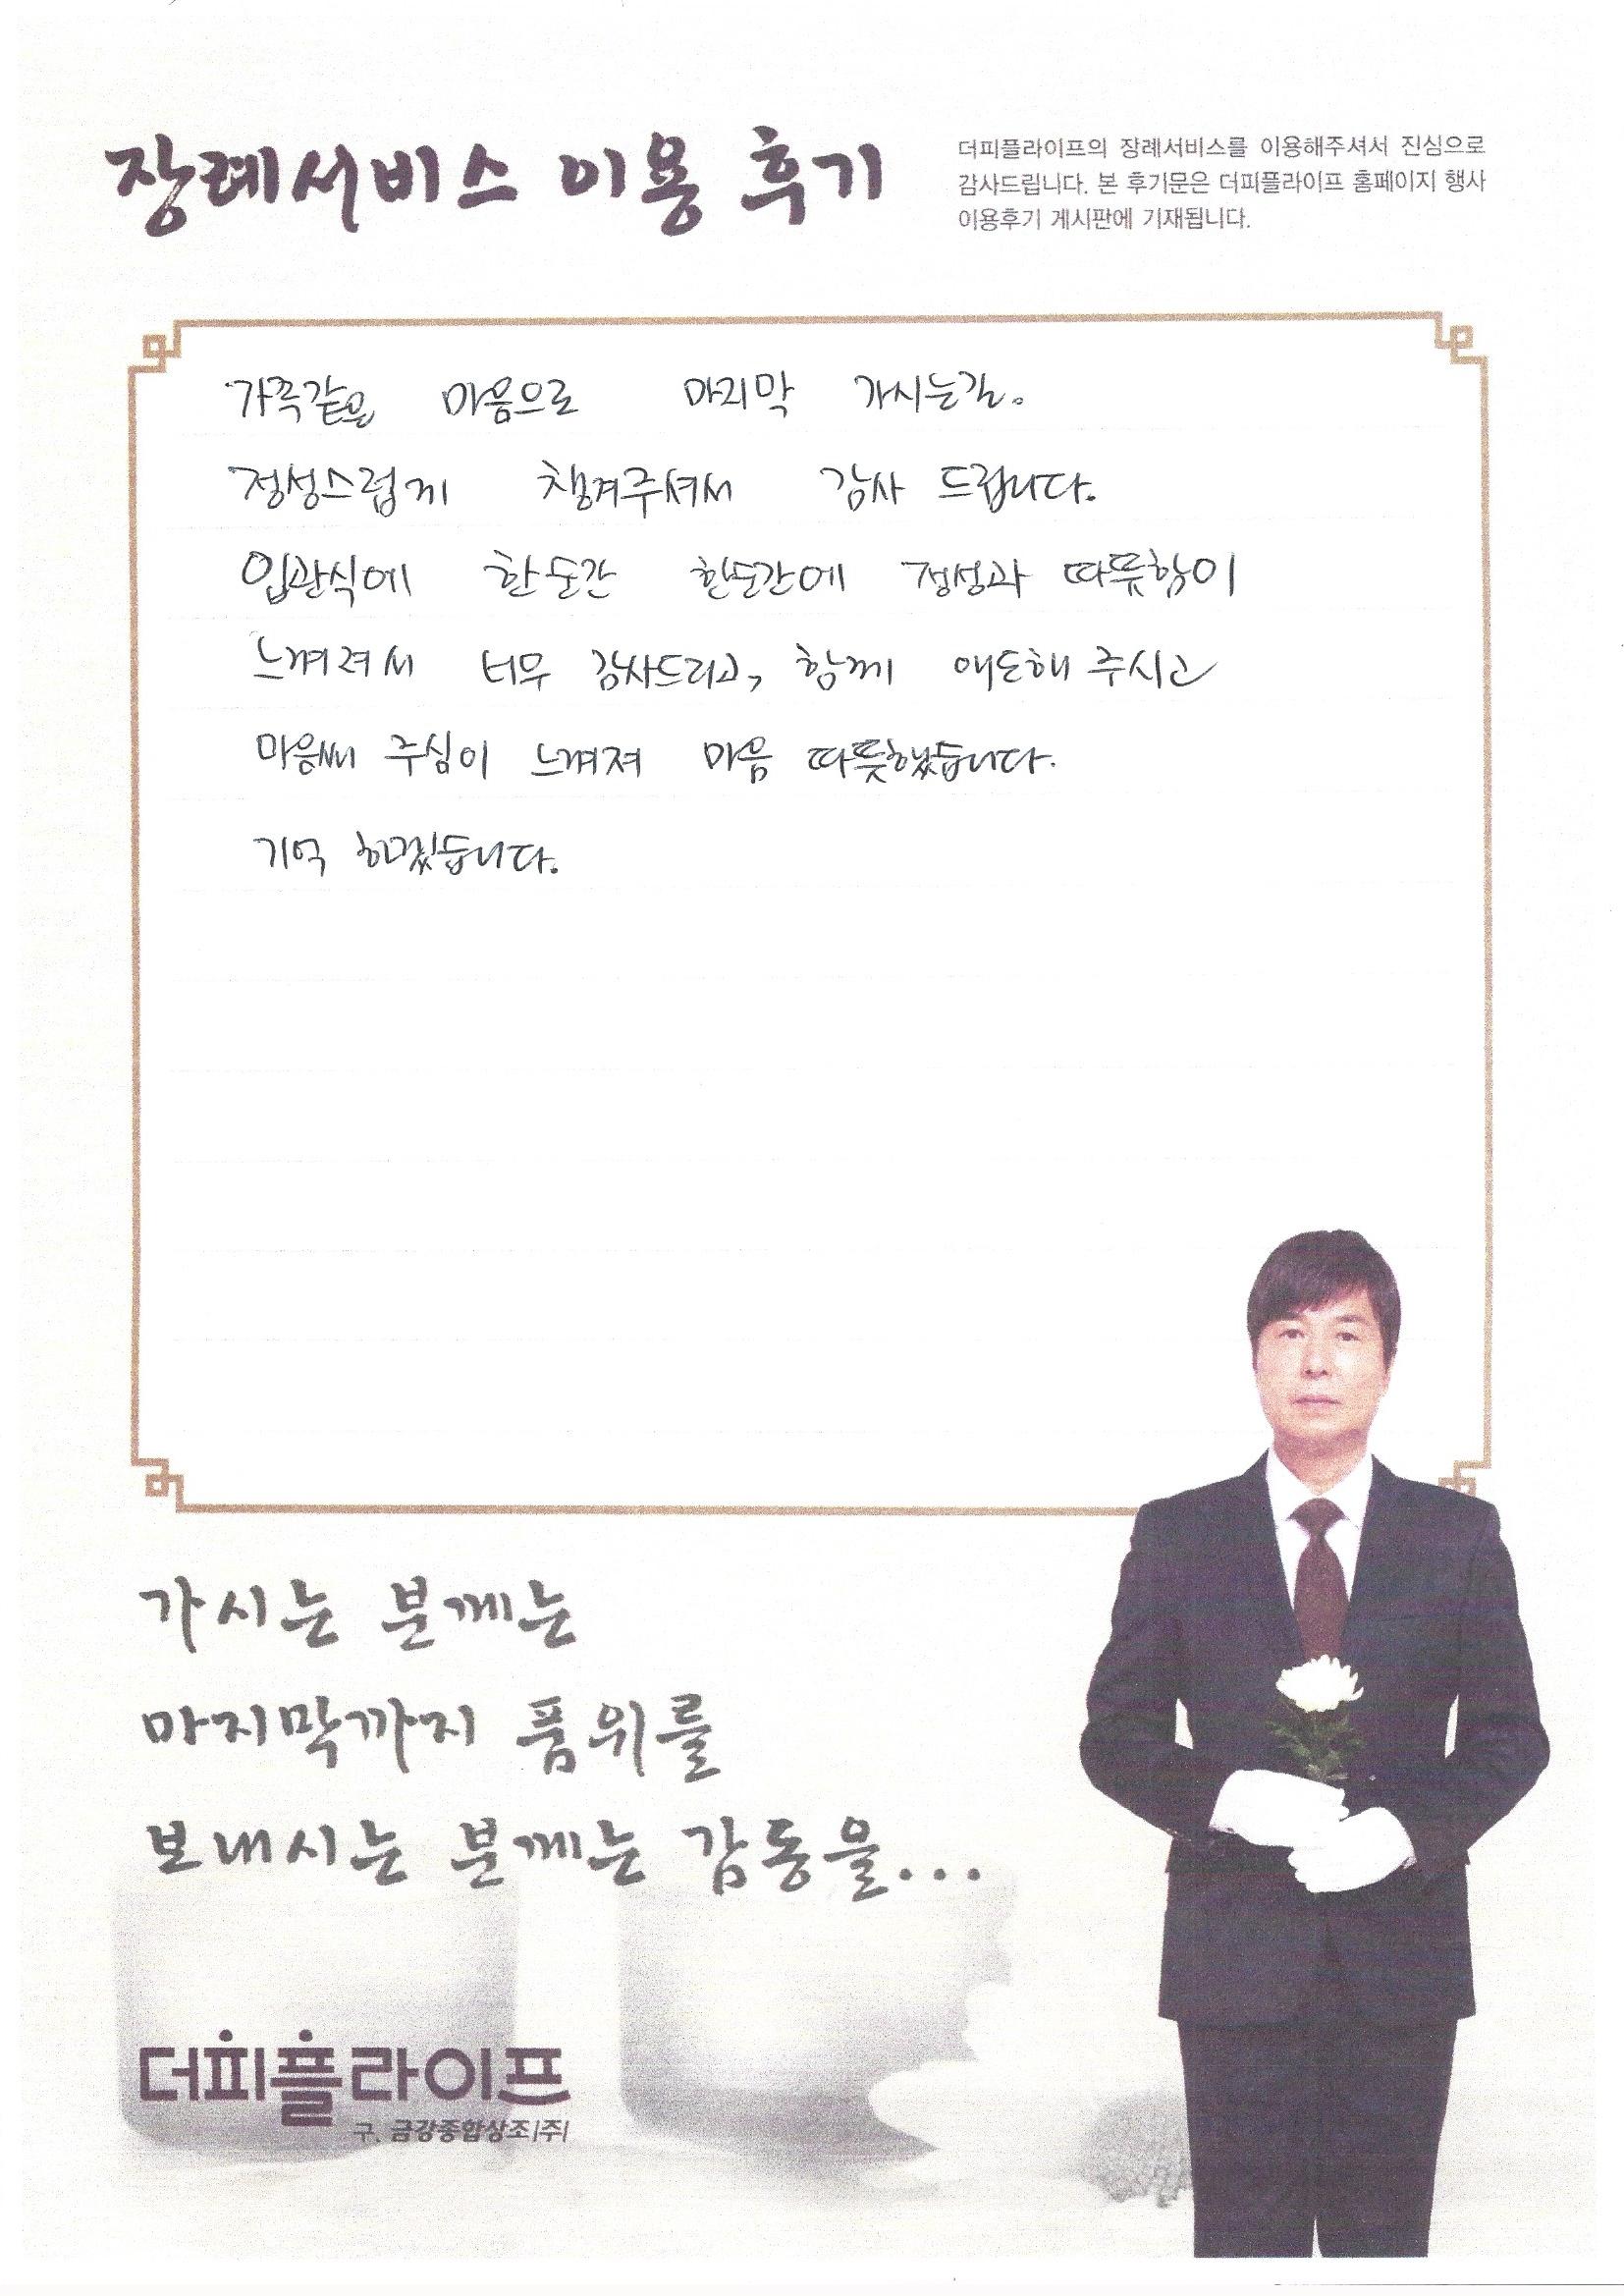 장례서비스 이용 후기
더피플라이프의 장례서비스를 이용해주셔서 진심으로
감사드립니다. 본 후기문은 더피플라이프 홈페이지 행사
이용후기 게시판에 기재됩니다.
가족같은 마음으로 마지막 가시는길.
정성스럽게 챙겨주셔서 감사 드립니다.
입관식에 한순간 한순간에 정성과 따뜻함이
느껴져서 너무 감사드리고, 함께 애도해 주시고
마음써 주심이 느껴져 마음 따뜻했습니다.
기억 하겠습니다.
가시는 분께는
마지막까지 품위를
보내시는 분께는 감동을...
더피플라이프
구. 금강종합상조(주)